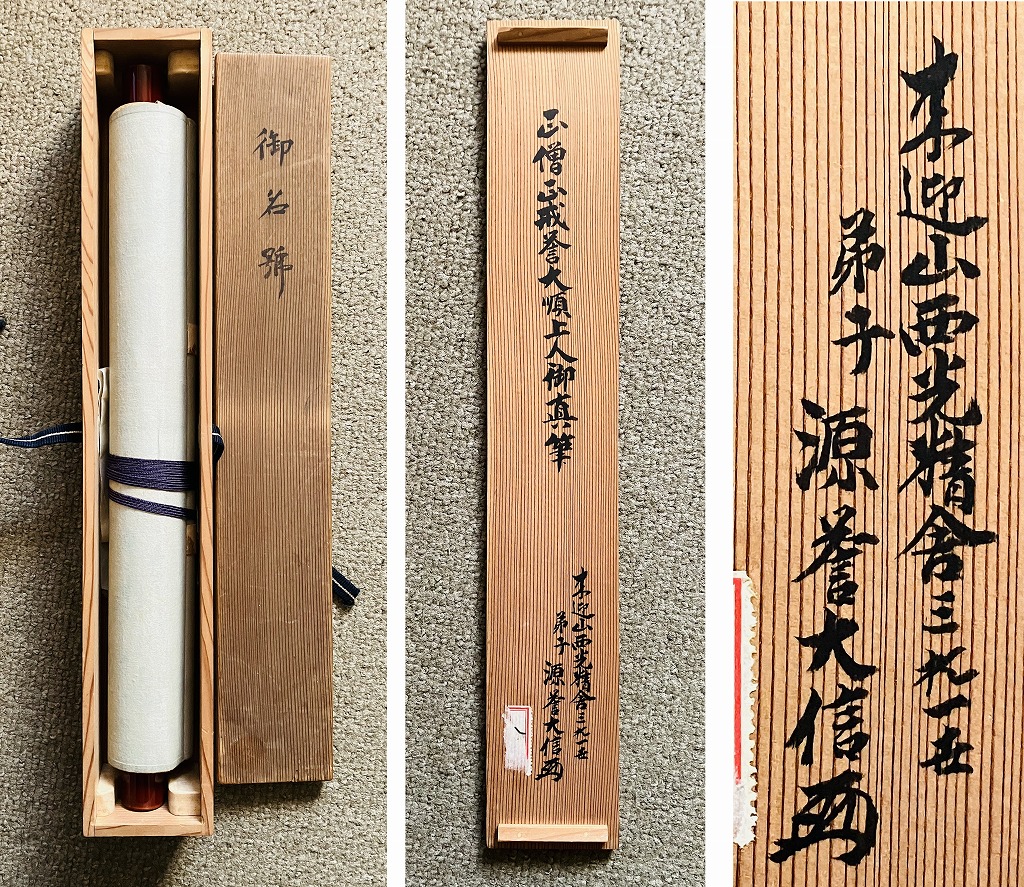 御名號
正僧正戒誉大順上人御真筆
来迎山西光精舎
弟子 源誉大信
来迎山西光精舎
弟子
源誉大信